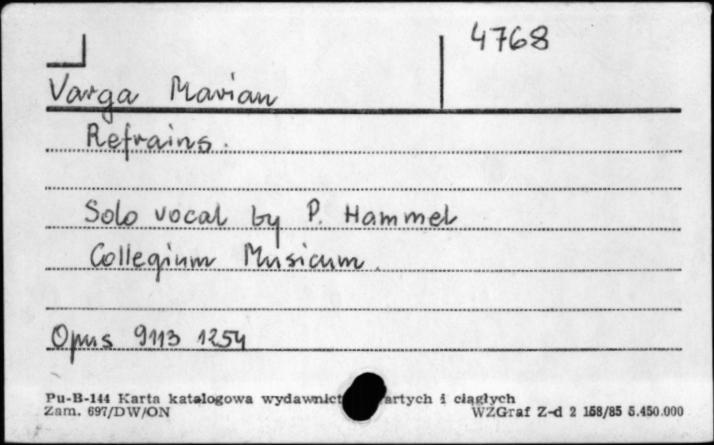 4768
Varga Marian
Refrains.
Solo vocal by P. Hammel
Collegium Musicum.
Opus 9113 1254
Pu-B-144 Karta katalogowa wydawnict artych i ciągłych
Zam. 697/DW/ON WZGraf Z-d 2 158/85 5.450.000